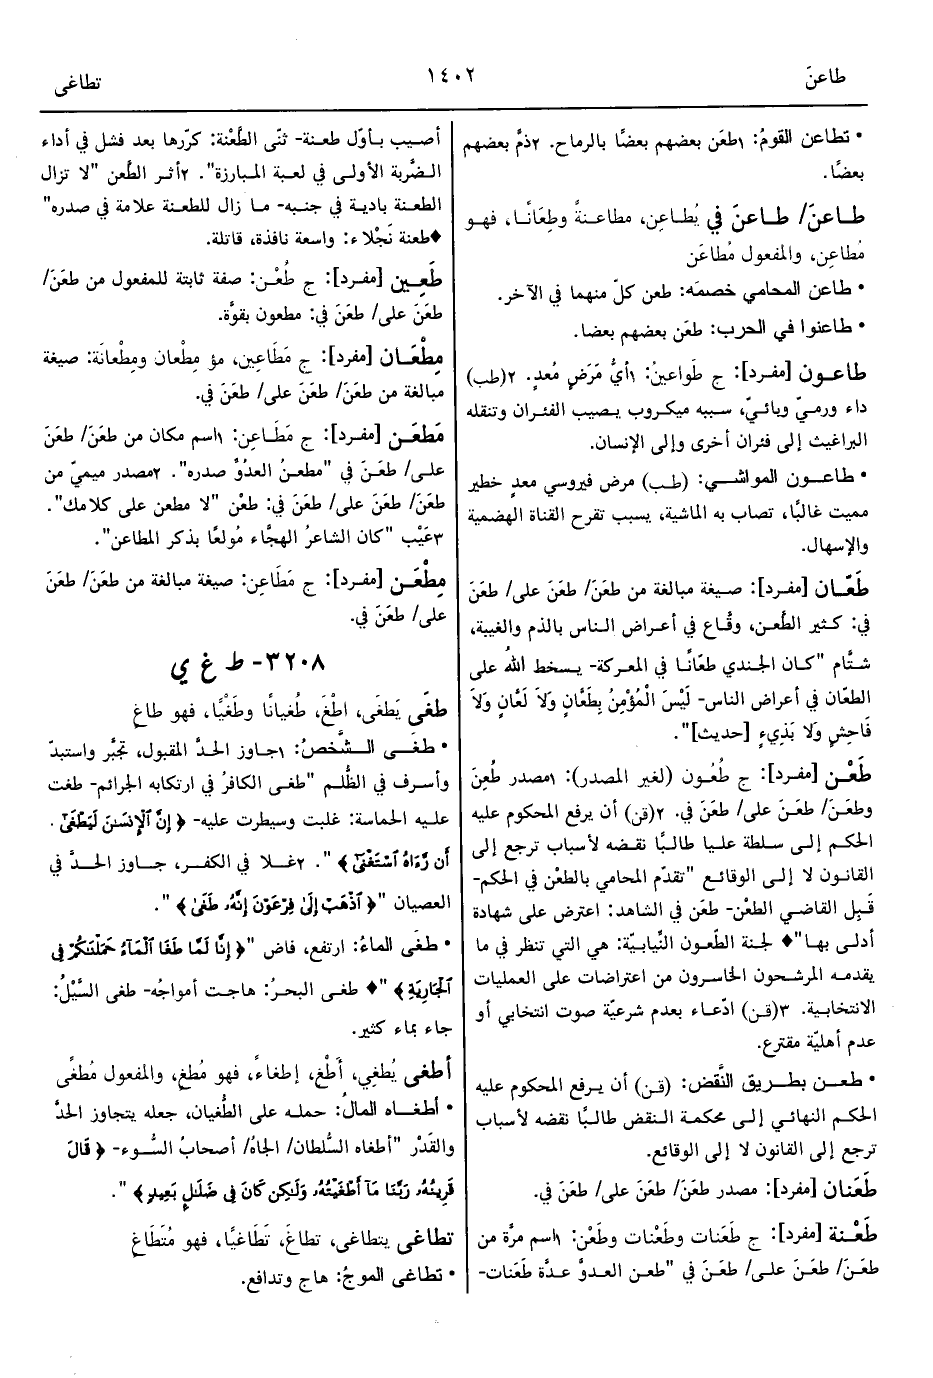 طاعنَ
١٤٠٢
تطاغى
• تطاعن القومُ: ١طعَن بعضهم بعضًا بالرماح. ٢ذمَّ بعضهم
بعضًا.
طـاعنَ/ طـاعنَ في يُطـاعِن، مطاعـنةً وطِعَانًـا، فهـو
مُطاعِن، والمفعول مُطاعَن
• طاعن المحامي خصمَه: طعن كلّ منهما في الآخر.
• طاعنوا في الحرب: طعَن بعضهم بعضا.
طاعـون [مفـرد]: ج طَواعينُ: ١أيُّ مَرَضٍ مُعدٍ. ٢(طب)
داء ورميّ وبائيّ، سببه ميكروب يصيب الفئران وتنقله
البراغيث إلى فئران أخرى وإلى الإنسان.
• طاعـون المواشـي: (طـب) مرض فيروسي معدٍ خطير
مميت غالبًا، تصاب به الماشية، يسبب تقرح القناة الهضمية
والإسهال.
طَعَّـان [مفرد]: صـيغة مبالغة من طعَنَ/ طعَنَ على/ طعَنَ
في: كـثير الطَّعـن، وقَّـاع في أعـراض الـناس بالـذم والغيبة،
شتَّام "كـان الجـندي طعّانًـا في المعركة- يسخط اللهُ على
الطعّان في أعراض الناس- لَيْسَ الْمُؤْمِنُ بِطَعَّانٍ وَلاَ لَعَّانٍ وَلاَ
فَاحِشٍ وَلاَ بَذِيءٍ [حديث]".
طَعْـن [مفـرد]: ج طُعُـون (لغير المصدر): ١مصدر طُعِنَ
وطعَـنَ/ طعَـنَ على/ طعَنَ في. ٢(قن) أن يرفع المحكوم عليه
الحكم إلـى سلطة عليا طالـبًا نقضه لأسباب ترجع إلى
القانون لا إلـى الوقائع "تقدّم المحامي بالطعْن في الحكم-
قـبِل القاضي الطعْن- طعَن في الشاهد: اعترض على شهادة
أدلى بها"♦ لجنة الطّعون النِّيابيّة: هي التي تنظر في ما
يقدمه المرشحون الخاسرون من اعتراضات على العمليات
الانتخابـية. ٣(قـن) ادّعاء بعدم شرعيّة صوت انتخابي أو
عدم أهليّة مقترع.
• طعـن بطـريق النَّقض: (قـن) أن يـرفع المحكوم عليه
الحكم النهائي إلـى محكمة النقض طالـبًا نقضه لأسباب
ترجع إلى القانون لا إلى الوقائع.
طَعَنان [مفرد]: مصدر طعَنَ/ طعَنَ على/ طعَنَ في.
طَعْـنة [مفرد]: ج طَعَنات وطَعْنات وطَعْن: ١اسم مرَّة من
طعَـنَ/ طعَنَ على/ طعَنَ في "طعن العدوَّ عدَّة طَعَنات-
أصيب بـأوّل طعـنة- ثنّى الطَّعْنة: كرّرها بعد فشل في أداء
الضَّربة الأولى في لعبة المبارزة". ٢أثـر الطَّعن "لا تزال
الطعنة بادية في جنبه- مـا زال للطعنة علامة في صدره"
♦طعنة نَجْلاء: واسعة نافذة، قاتلة.
طَعِين [مفرد]: ج طُعْـن: صفة ثابتة للمفعول من طعَنَ/
طعَنَ على/ طعَنَ في: مطعون بقوَّة.
مِطْعَـان [مفرد]: ج مَطَاعِين، مؤ مِطْعان ومِطْعانَة: صيغة
مبالغة من طعَنَ/ طعَنَ على/ طعَنَ في.
مَطعَـن [مفرد]: ج مَطَـاعِن: ١اسم مكان من طعَنَ/ طعَنَ
علـى/ طعَـنَ في "مطعنُ العدوِّ صدره". ٢مصدر ميميّ من
طعَنَ/ طعَنَ على/ طعَنَ في: طعْن "لا مطعن على كلامك".
٣عَيْب "كان الشاعرُ الهجَّاء مُولعًا بذكر المطاعن".
مِطْعَـن [مفرد]: ج مَطَاعِن: صيغة مبالغة من طعَنَ/ طعَنَ
على/ طعَنَ في.
٣٢٠٨- ط غ ي
طغَى يَطغَى، اطْغَ، طُغيانًا وطَغْيًا، فهو طاغٍ
• طغَـى الشَّخصُ: ١جـاوز الحدَّ المقبول، تجبَّر واستبدّ
وأسـرف في الظُّلـم "طغى الكافرُ في ارتكابه الجرائم- طغت
علـيه الحماسة: غلبت وسيطرت عليه- ﴿إِنَّ ٱلْإِنسَٰنَ لَيَطْغَىٰٓ.
أَن رَّءَاهُ ٱسْتَغْنَىٰٓ﴾". ٢غـلا في الكفـر، جـاوز الحـدَّ في
العصيان "﴿ٱذْهَبْ إِلَىٰ فِرْعَوْنَ إِنَّهُۥ طَغَىٰ﴾".
• طغَى الماءُ: ارتفع، فاض "﴿إِنَّا لَمَّا طَغَا ٱلْمَآءُ حَمَلْنَٰكُمْ فِى
ٱلْجَارِيَةِ﴾"♦ طغى البحرُ: هاجـت أمواجُه- طغى السَّيْلُ:
جاء بماء كثير.
أطغَى يُطغِي، أَطْغِ، إطغاءً، فهو مُطغٍ، والمفعول مُطغًى
• أطغـاه المالُ: حمله على الطُّغيان، جعله يتجاوز الحدَّ
والقَدْر "أطغاه السُّلطان/ الجاهُ/ أصحابُ السُّـوء- ﴿قَالَ
قَرِينُهُۥ رَبَّنَا مَآ أَطْغَيْتُهُۥ وَلَٰكِن كَانَ فِى ضَلَٰلٍۭ بَعِيدٍ﴾".
تطاغَى يتطاغى، تطاغَ، تَطَاغيًا، فهو مُتَطَاغٍ
• تطاغى الموجُ: هاج وتدافع.